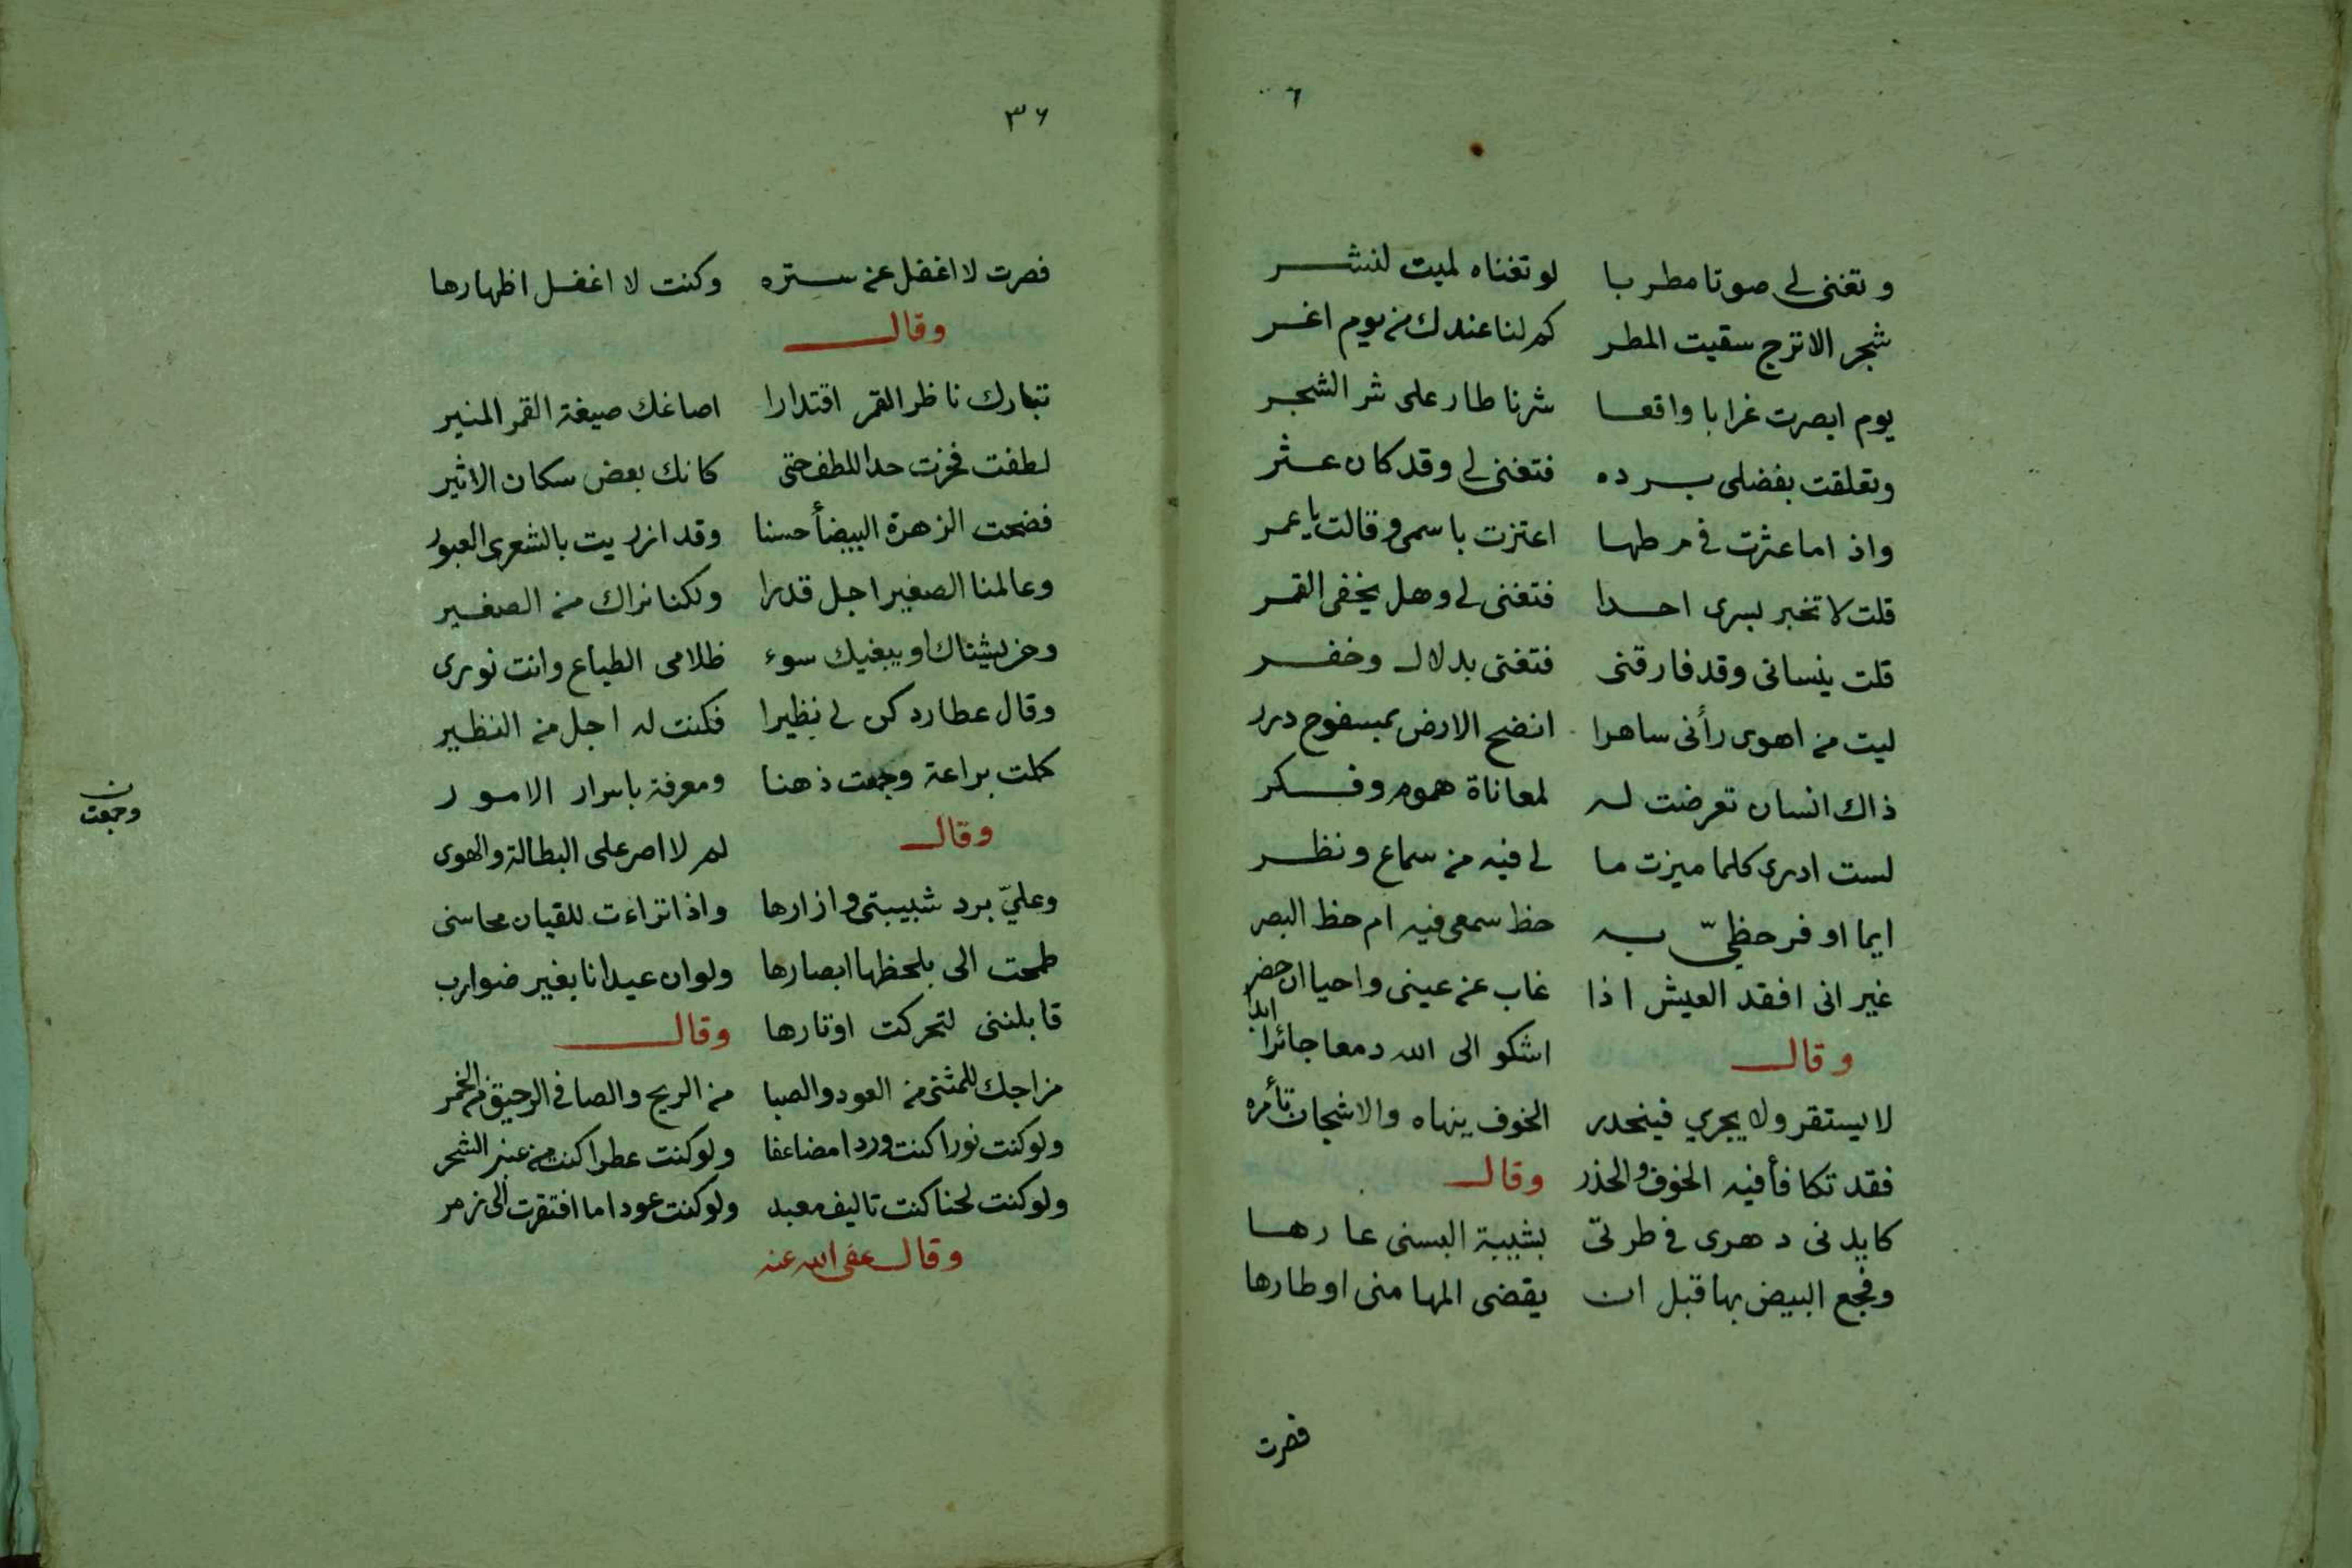 ٦
وتغنى لي صوتا مطربا لو تغناه لميت لنشر
شجر الاترج سقيت المطر كم لنا عندك من يوم اغر
يوم ابصرت غرابا واقعا شرنا طار على شر الشجر
وتعلقت بفضلى برده فتغنى لي وقد كان عثر
واذا ما عثرت في مرطها اعتزت باسمى وقالت يا عمر
قلت لا تخبر بسرى احدا فتغنى لي وهل يخفى القمر
قلت ينسانى وقد فارقنى فتغنى بدلال وخفر
ليت من اهوى رأنى ساهرا انضح الارض بمسفوح درر
ذاك انسان تعرضت له لمعاناة هموم وفكر
لست ادرى كلما ميزت ما لي فيه من سماع ونظر
ايما اوفر حظيّ به حظ سمعى فيه ام حظ البصر
غير انى افقد العيش اذا غاب عن عينى واحيا ان حضر
وقال اشكو الى الله دمعا جائرا ابدا
لا يستقر ولا يجري فينحدر الخوف ينهاه والاشجان تأمره
فقد تكافأ فيه الخوف والحذر وقال
كايدنى دهرى في طرتى بشيبة البسنى عارها
وفجع البيض بها قبل ان يقضى المها منى اوطارها
فصرت
٣٦
فصرت لا اغفل عن ستره وكنت لا اغفل اظهارها
وقال
تبارك ناظر القمر اقتدارا اصاغك صيغة القمر المنير
لطفت فحزت حد اللطف حتى كانك بعض سكان الاثير
فضحت الزهرة البيضأ حسنا وقد ازريت بالشعرى العبور
وعالمنا الصغير اجل قدرا ولكنا نراك من الصغير
ومن يشناك او يبغيك سوء ظلامى الطباع وانت نورى
وقال عطارد كن لي نظيرا فكنت له اجل من النظير
كملت براعة وجمعت ذهنا ومعرفة باسرار الامور
وجمعت ن
وقال لم لا اصر على البطالة والهوى
وعليّ برد شبيبتى وازارها واذا تراءت للقيان محاسنى
طمحت الى بلحظها ابصارها ولو ان عيدانا بغير ضوارب
قابلننى لتحركت اوتارها وقال
مزاجك للمثنى من العود والصبا من الريح والصافي الرحيق من الخمر
ولو كنت نورا كنت وردا مضاعفا ولو كنت عطرا كنت من عنبر الشحر
ولو كنت لحنا كنت تاليف معبد ولو كنت عودا ما افتقرت الى زمر
وقال عفى الله عنه